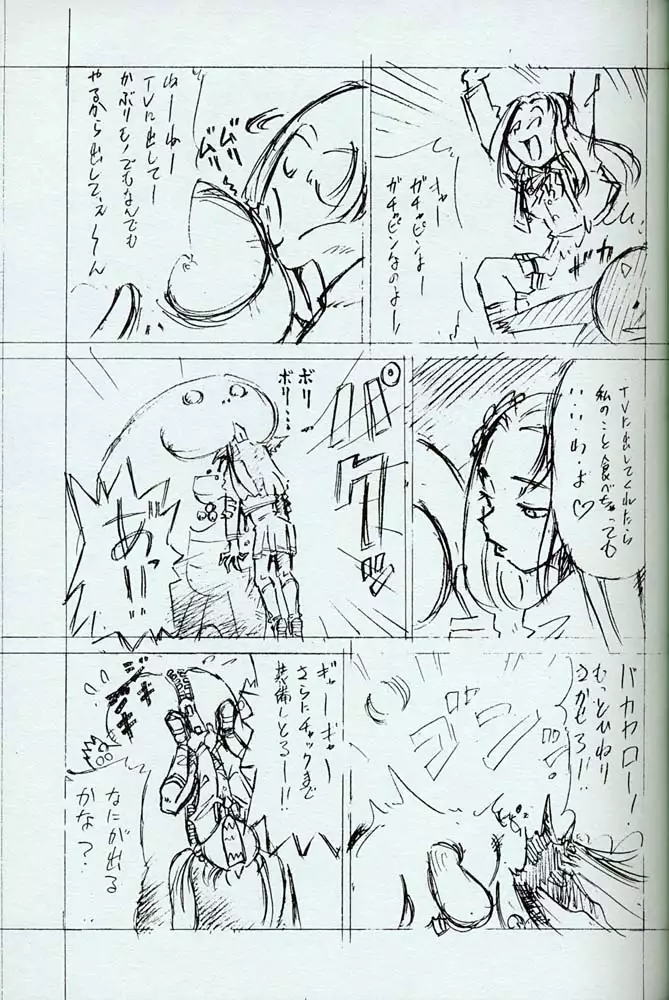 キャー
ガチャピンよー
ガチャピンなのよー!
ガガ
ねーねー
TVに出してー
かぶりモノでもなんでも
やるから出してぇ〜ん
ムリ
ムリ
TVに出してくれたら
私のこと食べちゃっても
いいわよ♡
パクーッ
ボリ
ボリ…
あっ!!
バカヤロー!
もっとひねり
きかせろ!!
ゴン
ギャーギャー
さらにチャックまで
装備しとるー!!
ギギ
なにが出る
かな?